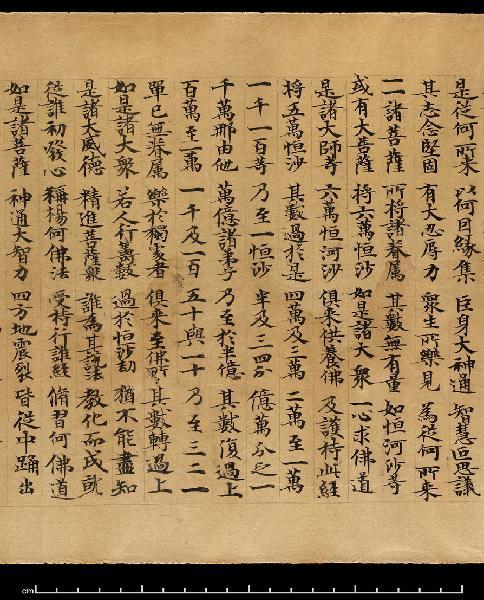 是從何所来 以何因緣集 巨身大神通 智慧叵思議
其志念堅固 有大忍辱力 衆生所樂見 為從何所来
一一諸菩薩 所將諸眷属 其數無有量 如恒河沙等
或有大菩薩 將六萬恒沙 如是諸大衆 一心求佛道
是諸大師等 六萬恒河沙 俱来供養佛 及護持此經
將五萬恒沙 其數過於是 四萬及三萬 二萬至一萬
一千一百等 乃至一恒沙 半及三四分 億萬分之一
千萬那由他 萬億諸弟子 乃至於半億 其數復過上
百萬至一萬 一千及一百 五十與一十 乃至三二一
單已無眷属 樂於獨處者 俱来至佛所 其數轉過上
如是諸大衆 若人行籌數 過於恒沙劫 猶不能盡知
是諸大威德 精進菩薩衆 誰為其說法 教化而成就
從誰初發心 稱揚何佛法 受持行誰經 脩習何佛道
如是諸菩薩 神通大智力 四方地震裂 皆從中踊出
cm